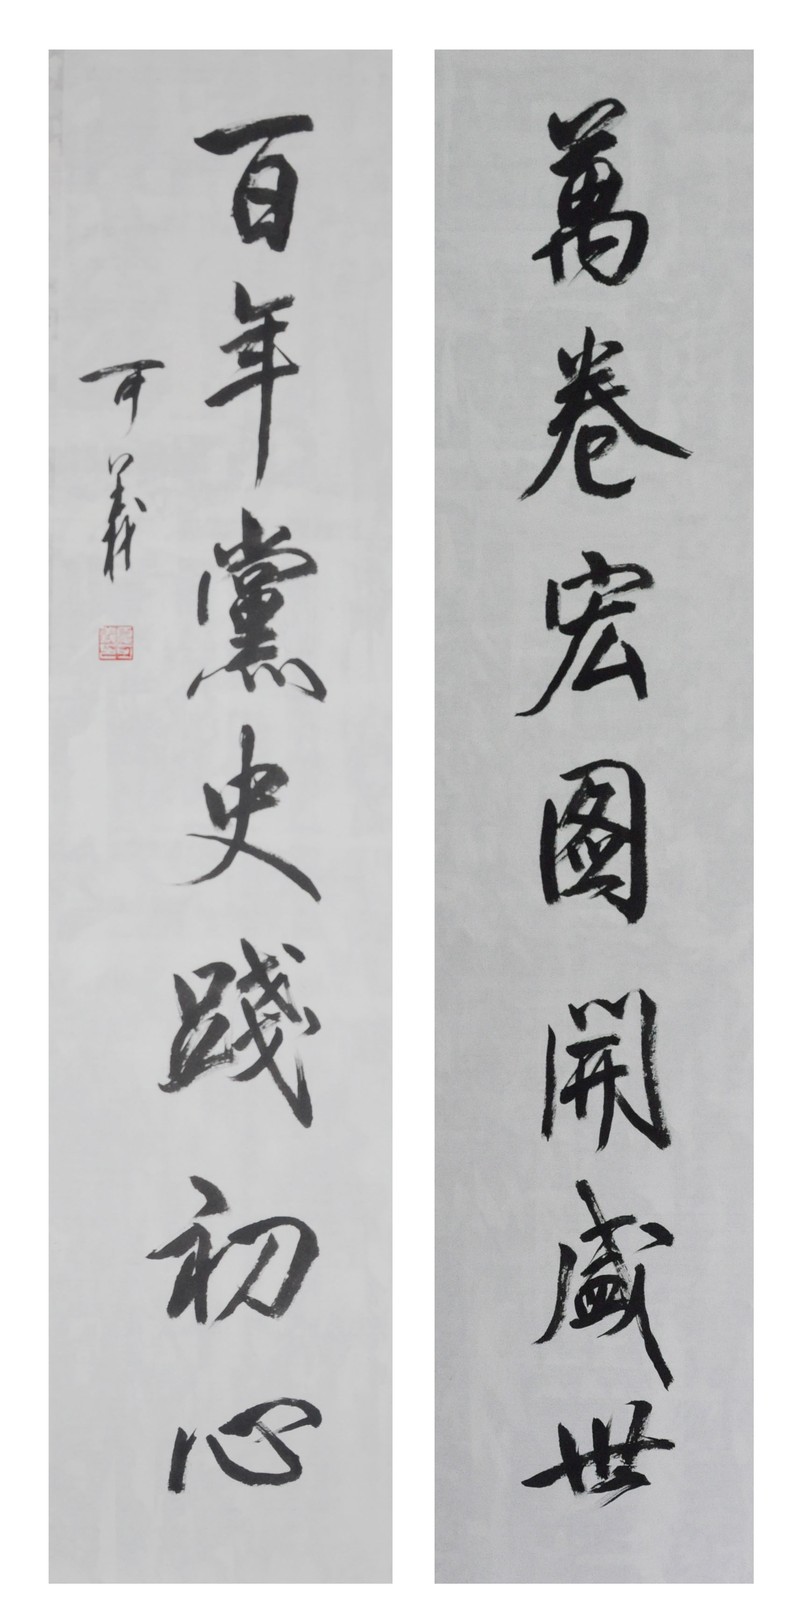 萬卷宏图開盛世
百年黨史踐初心
可義